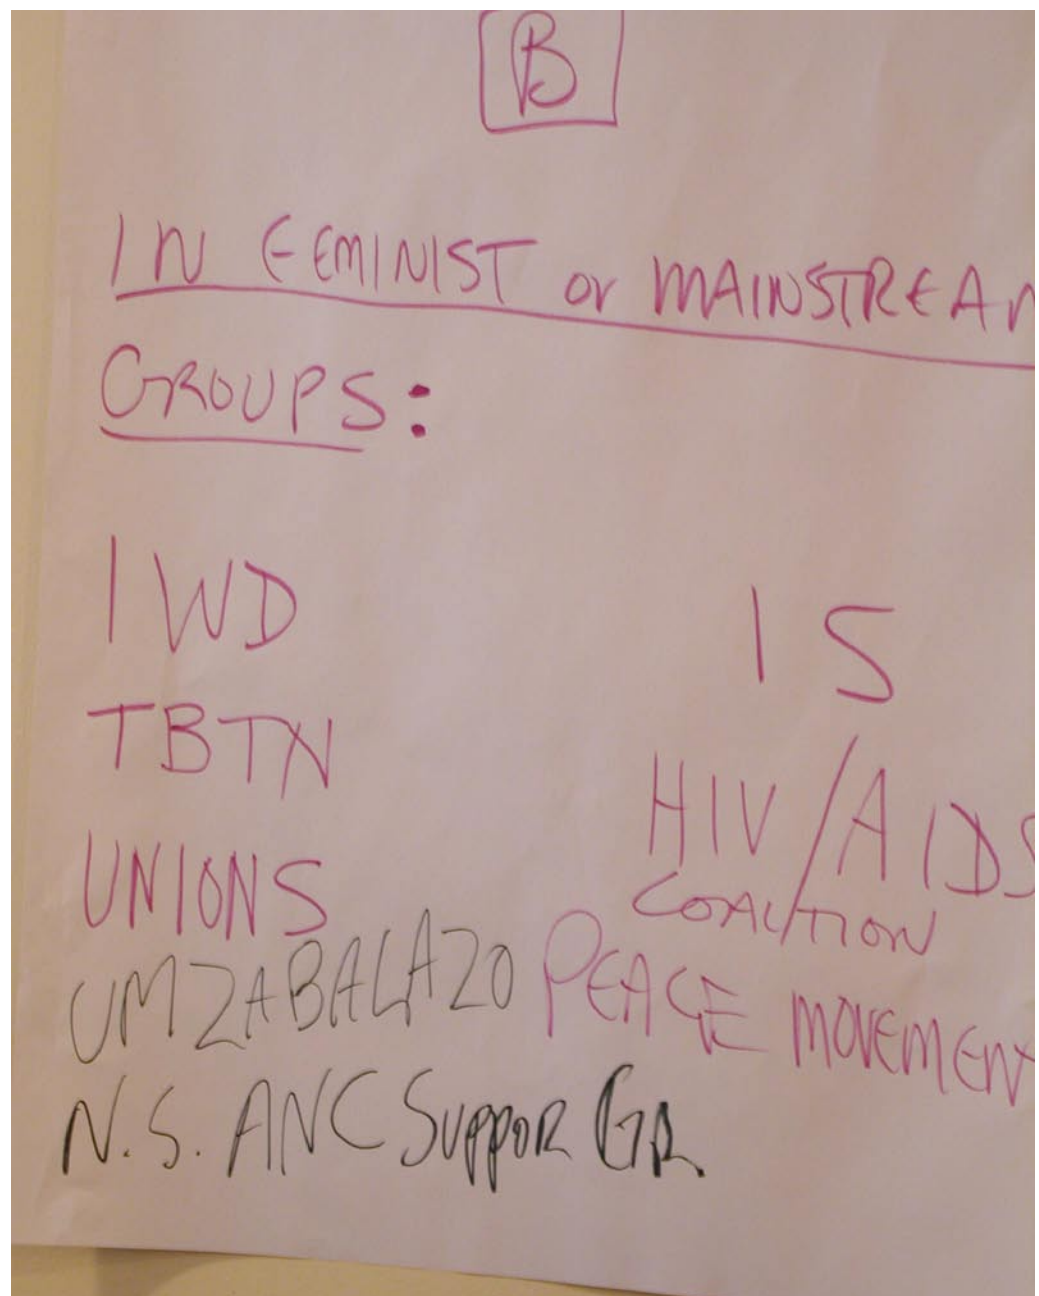 B
IN FEMINIST or MAINSTREAM
GROUPS:
IWD
TBTN
UNIONS
UMZABALAZO
N.S. ANC Suppor GR.
IS
HIV/AIDS
COALITION
PEACE MOVEMENT